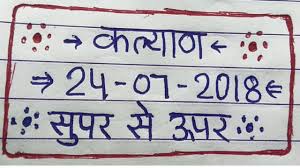 → कल्याण ←
⇒ 24-07-2018 ⇐
सुपर से ऊपर